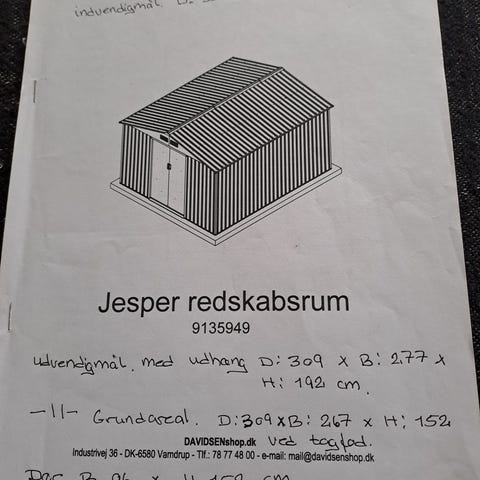 indvendigmål. D:
Jesper redskabsrum
9135949
udvendigmål. med udhang D: 309 x B: 277 x
H: 192 cm.
-11- Grundareal. D: 309 x B: 267 x H: 152
DAVIDSENshop.dk ved tagfod.
Industrivej 36 - DK-6580 Vamdrup - Tlf.: 78 77 48 00 - e-mail: mail@davidsenshop.dk
B: 96 x H: 152 cm